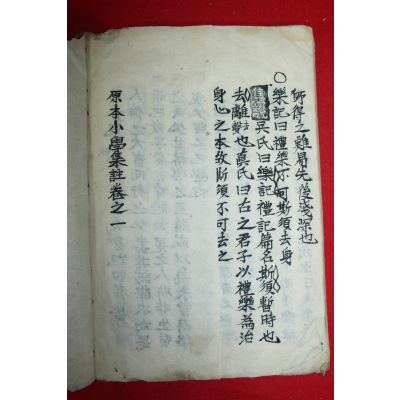 所得之難易先後淺深也
○樂記曰禮樂不可斯須去身
集說吳氏曰樂記禮記篇名斯須暫時也
去離也真氏曰古之君子以禮樂為治
身心之本故斯須不可去之
原本小學集註卷之一